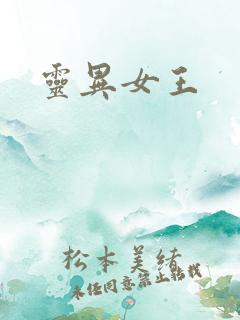 靈異女王
松本美緒
未經同意禁止轉載